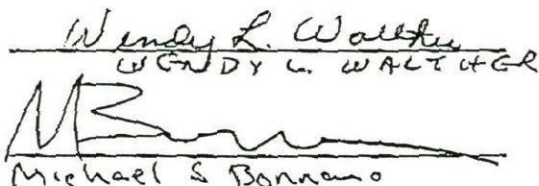 Wendy L. Walther
WENDY L. WALTHER
Michael S Bonnano